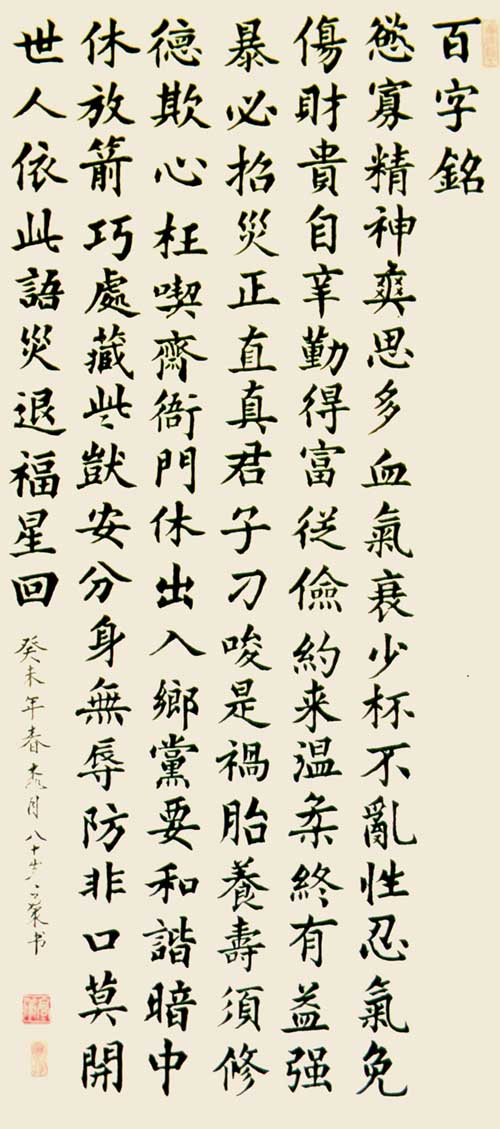 百字銘
慾寡精神爽思多血氣衰少杯不亂性忍氣免
傷財貴自辛勤得富従儉約来温柔終有益强
暴必招災正直真君子刁唆是禍胎養壽須修
德欺心枉喫齋衙門休出入鄉黨要和諧暗中
休放箭巧處藏些獃安分身無辱防非口莫開
世人依此語災退福星回
癸未年春月八十岁书